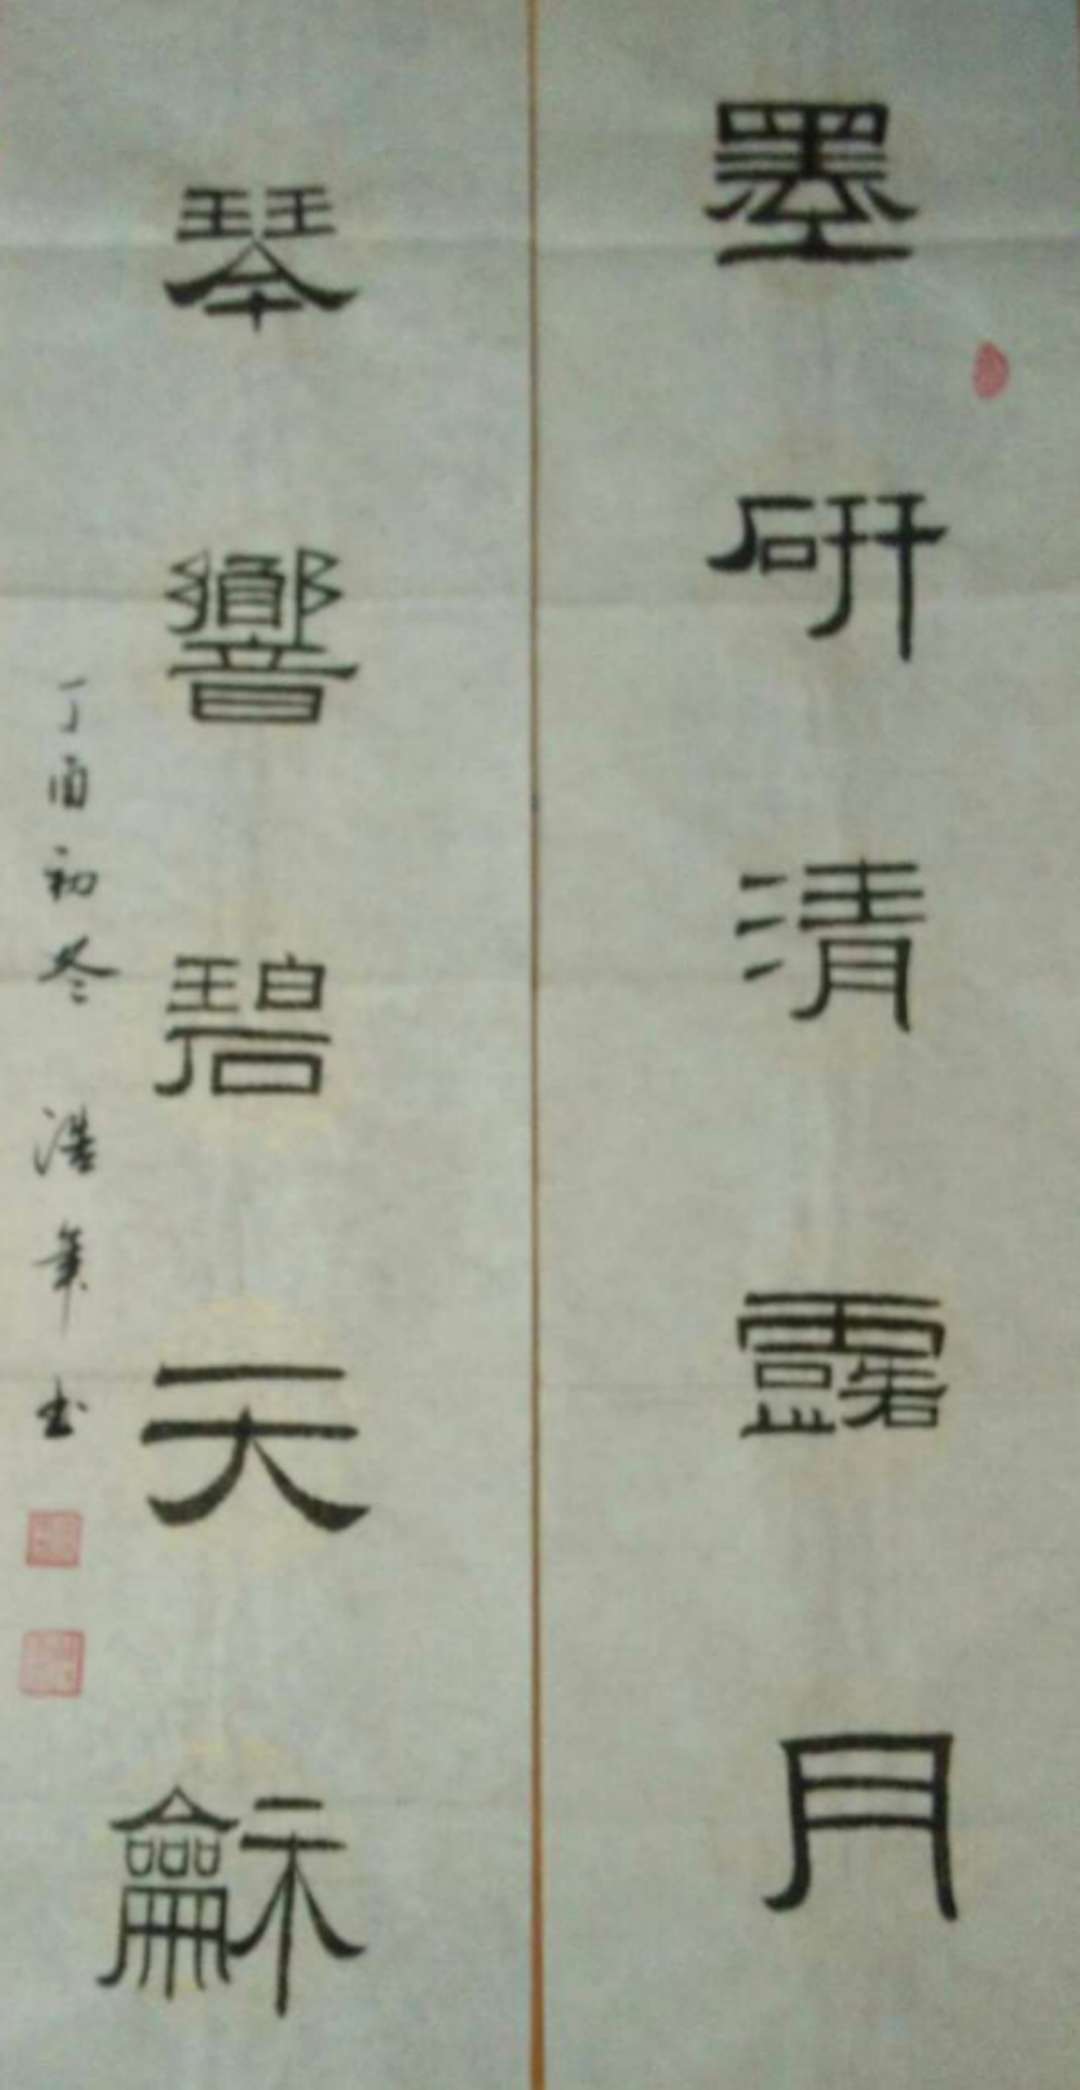 墨研清露月
琴響碧天龢
丁酉初冬 浩笔书